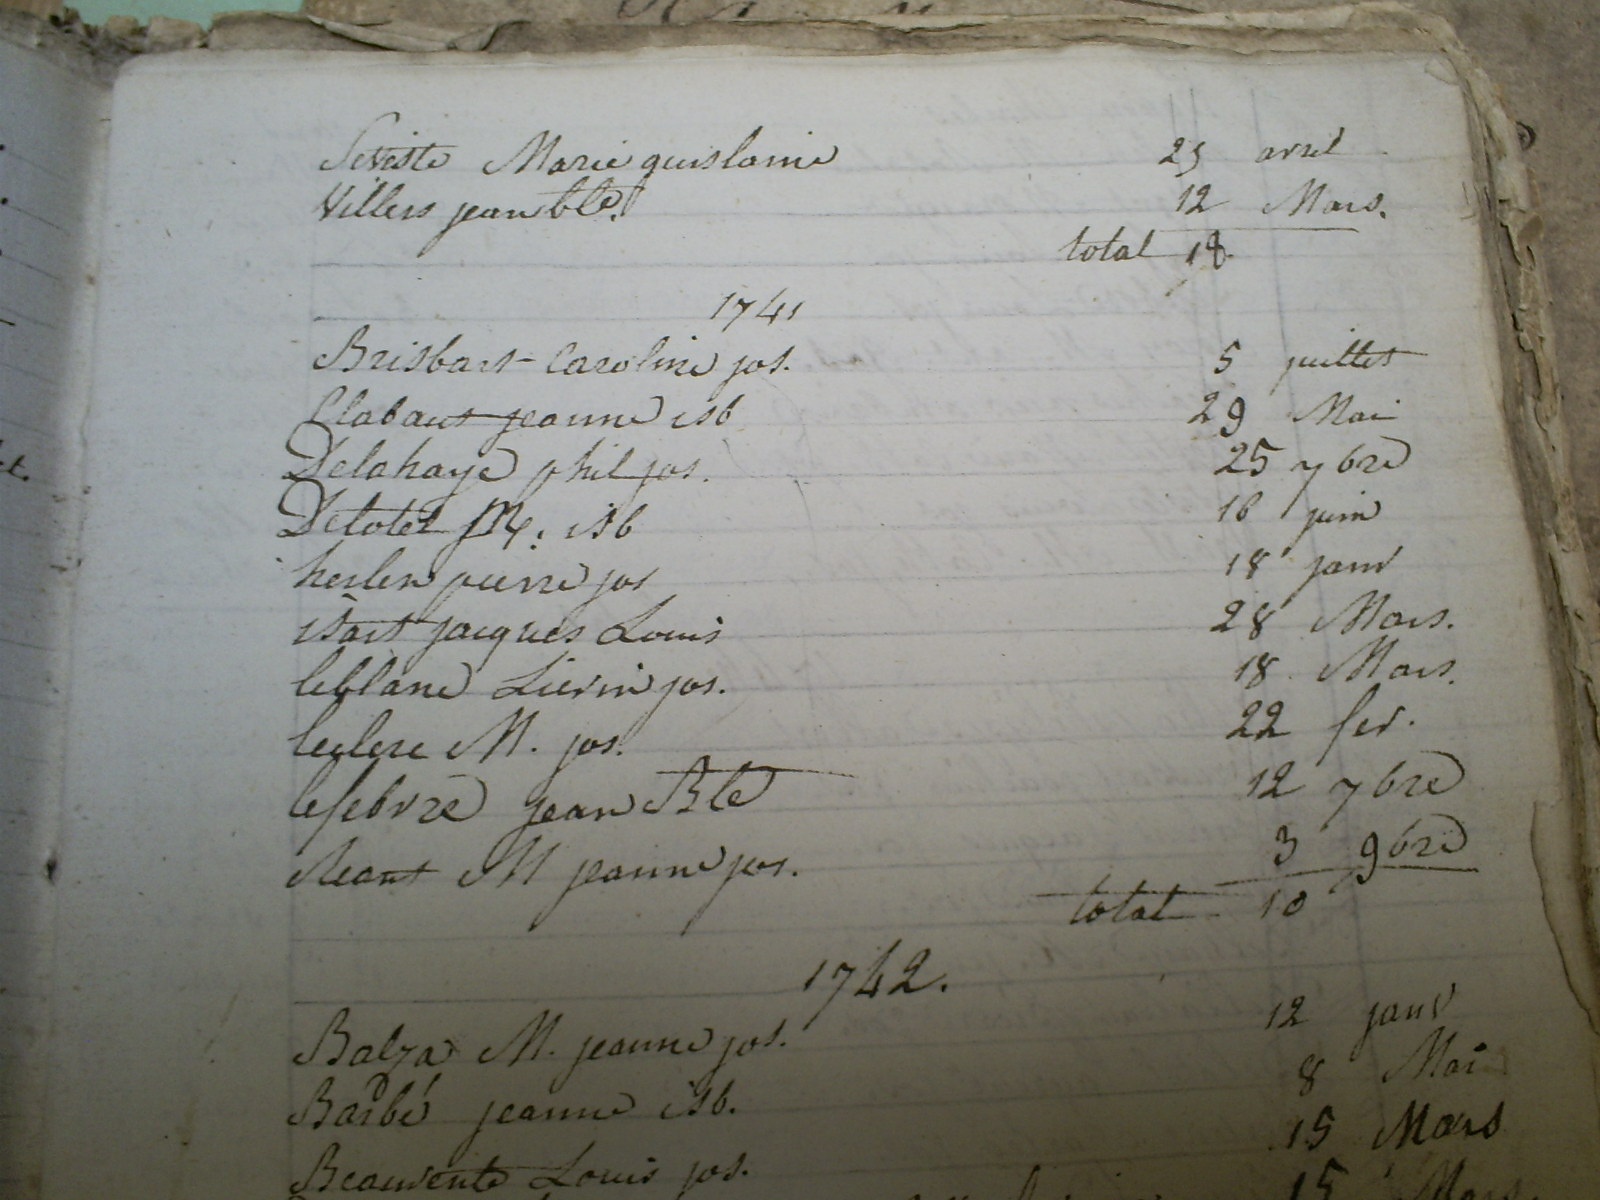 Seviste Marie guislaine 25 avril
Villers jean bte. 12 Mars.
total 18.
1741
Brisbart Caroline jos. 5 juillet
Clabaut jeanne isb 29 Mai
Delahaye phil jos. 25 7bre
Detotel isb 16 juin
herlen pierre jos 18 janv
istart jacques Louis 28 Mars.
leblanc Lievin jos. 18 Mars.
leclerc M. jos. 22 fev.
lefebvre jean Bte 12 7bre
M jeanne jos. 3 9bre
total 10
1742.
Balza M. jeanne jos. 12 janv
Barbé jeanne isb. 8 Mai
Beauvente Louis jos. 15 Mars
15 Mars